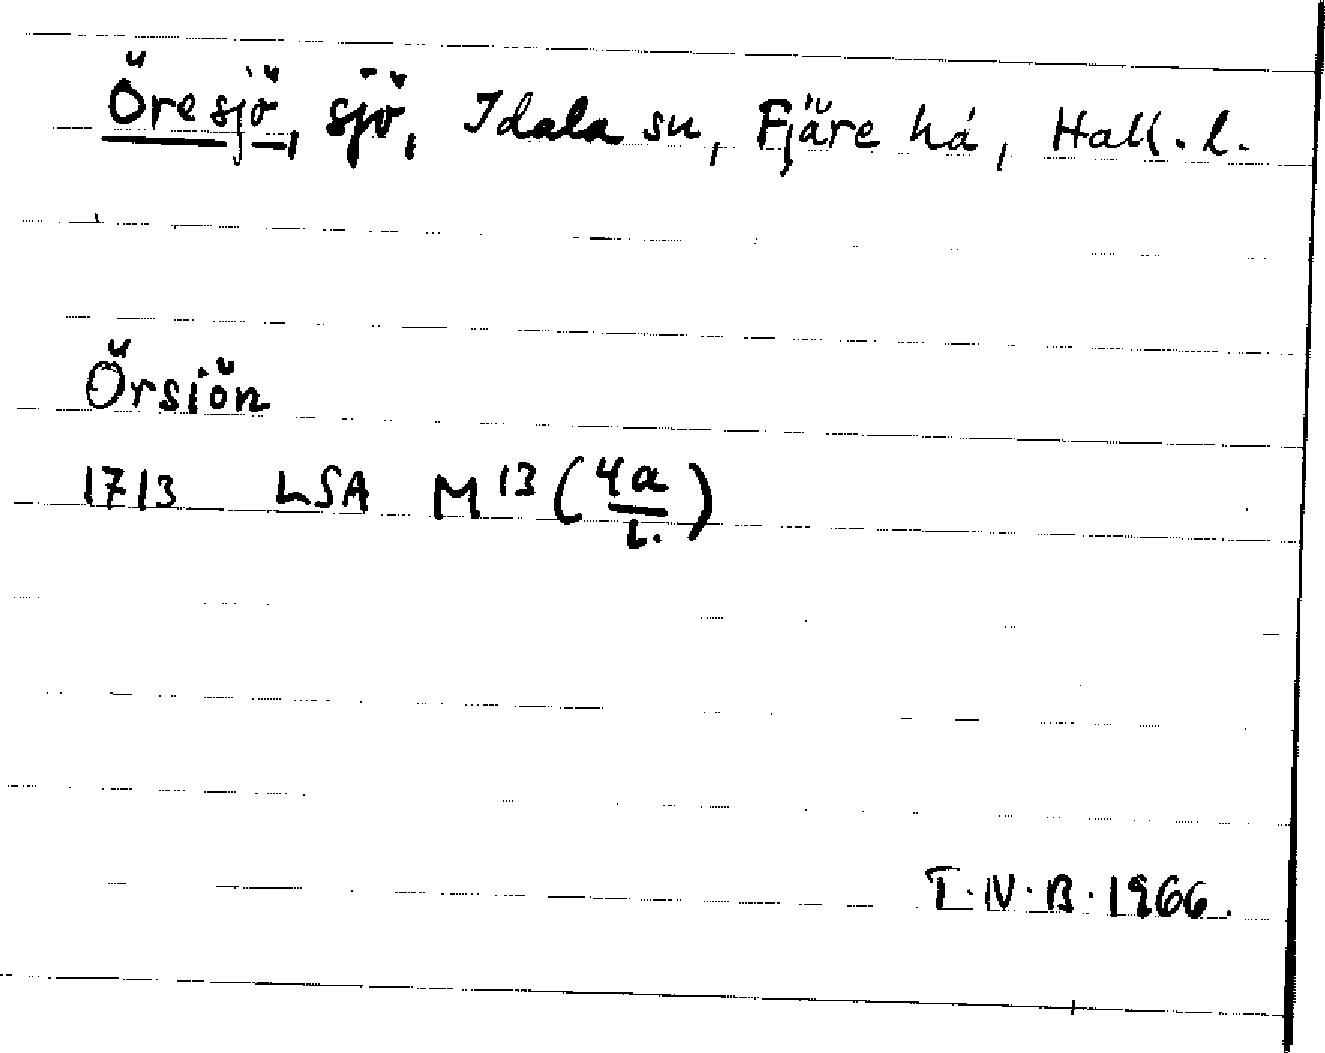 Öresjö, sjö, Idala sn, Fjäre hd, Hall. l.
Örsiön
1713 LSA M 13 (4a/1.)
T.N.B. 1966.